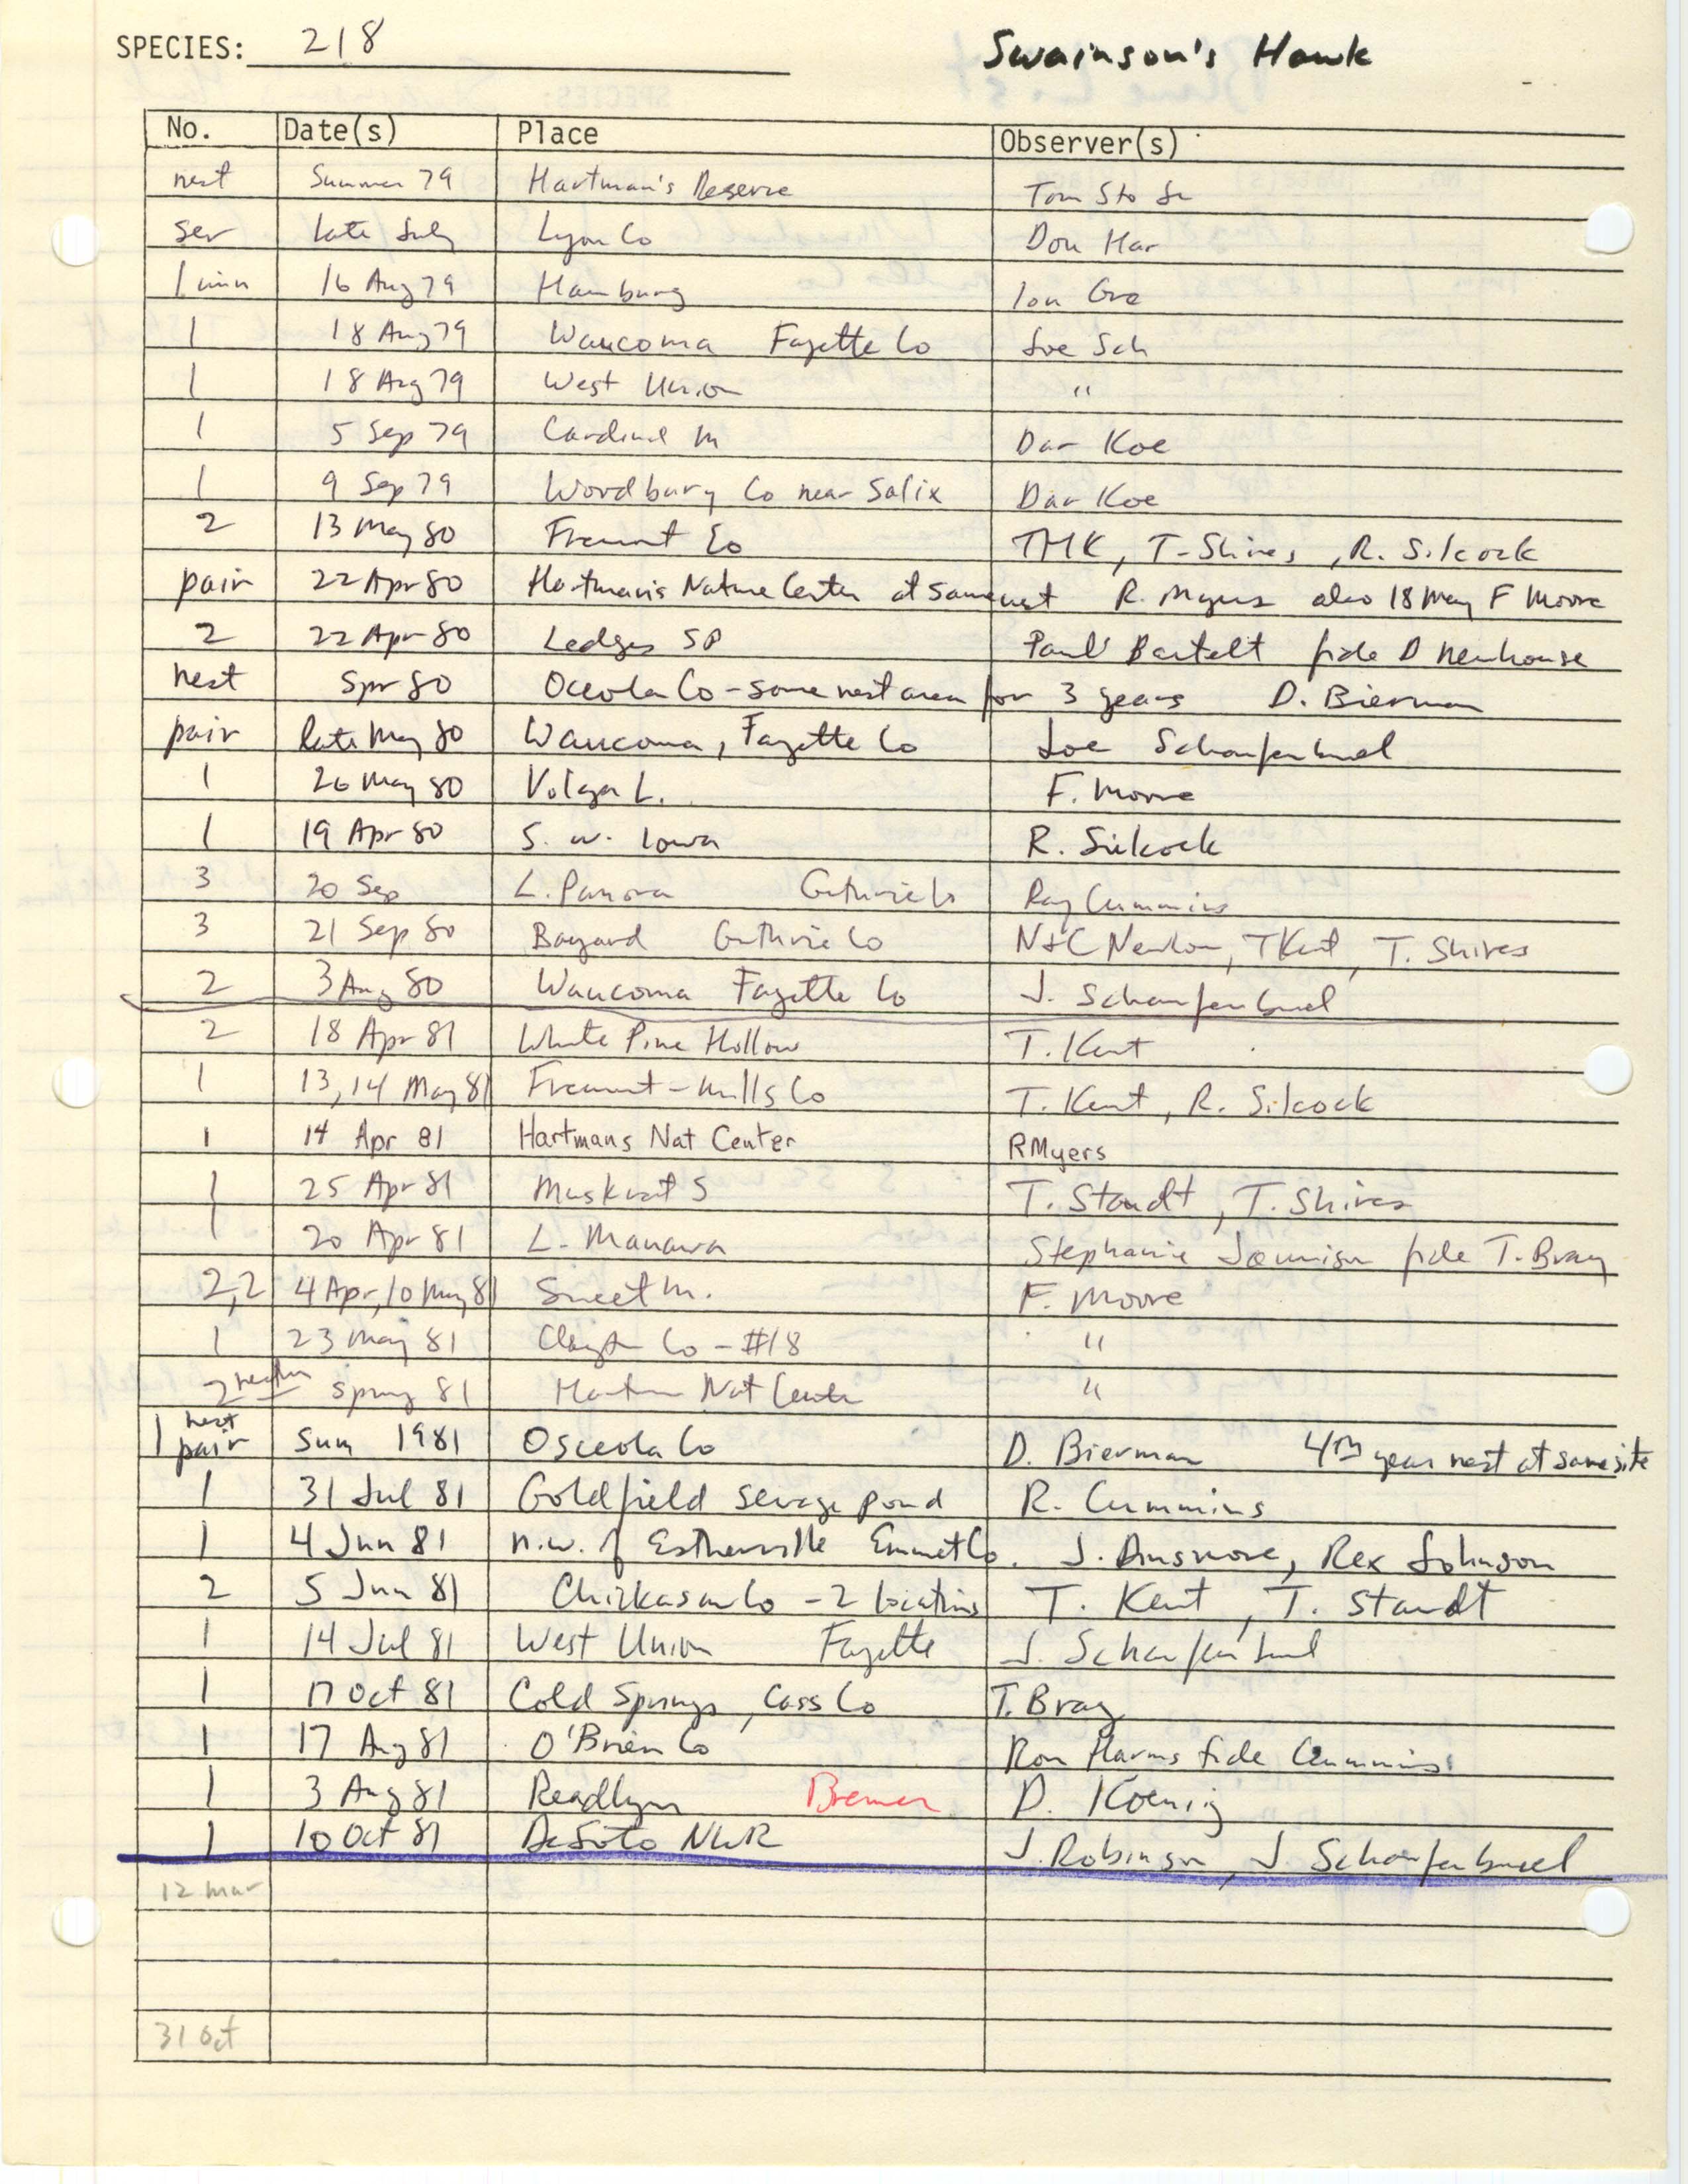 SPECIES: 218 Swainson's Hawk
No. Date(s) Place Observer(s)
nest Summer 79 Hartman's Reserve Tom Sto Jr
sev late July Lyon Co Don Har
1 imm 16 Aug 79 Hamburg Ion Gre
1 18 Aug 79 Waucoma Fayette Co Joe Sch
1 18 Aug 79 West Union "
1 5 Sep 79 Cardinal M Dar Koe
1 9 Sep 79 Woodbury Co near Salix Dar Koe
2 13 May 80 Fremont Co THK, T. Shires, R. Silcock
pair 22 Apr 80 Hartman's Nature Center at same nest R. Myers also 18 May F Moore
2 22 Apr 80 Ledges SP Paul Bartelt fide D Newhouse
nest Spr 80 Oceola Co - same nest area for 3 years D. Bierman
pair late May 80 Waucoma, Fayette Co Joe Schaufenbuel
1 26 May 80 Volga L. F. Moore
1 19 Apr 80 S. W. Iowa R. Silcock
3 20 Sep L. Panora Guthrie Co Ray Cummins
3 21 Sep 80 Bayard Guthrie Co N+C Newlon, T Kent, T. Shires
2 3 Aug 80 Waucoma Fayette Co J. Schaufenbuel
2 18 Apr 81 White Pine Hollow T. Kent
1 13,14 May 81 Fremont - Mills Co T. Kent, R. Silcock
1 14 Apr 81 Hartmans Nat Center RMyers
1 25 Apr 81 Muskrat S T. Staudt, T. Shires
1 20 Apr 81 L. Manawa Stephanie fide T. Bray
2,2 4 Apr, 10 May 81 Sweet M. F. Moore
1 23 May 81 Clayton Co - #18 "
2 spring 81 Hartman Nat Center "
1 nest pair Sum 1981 Osceola Co D. Bierman 4th year nest at same site
1 31 Jul 81 Goldfield sewage pond R. Cummins
1 4 Jun 81 n.w. of Estherville Emmet Co. J. Dinsmore, Rex Johnson
2 5 Jun 81 Chickasaw Co - 2 locations T. Kent, T. Staudt
1 14 Jul 81 West Union Fayette J. Schaufenbuel
1 17 Oct 81 Cold Springs, Cass Co T. Bray
1 17 Aug 81 O'Brien Co Ron Harms fide Cummins
1 3 Aug 81 Readlyn Bremer D. Koenig
1 10 Oct 81 DeSoto NWR J. Robinson, J. Schaufenbuel
12 mar
31 Oct